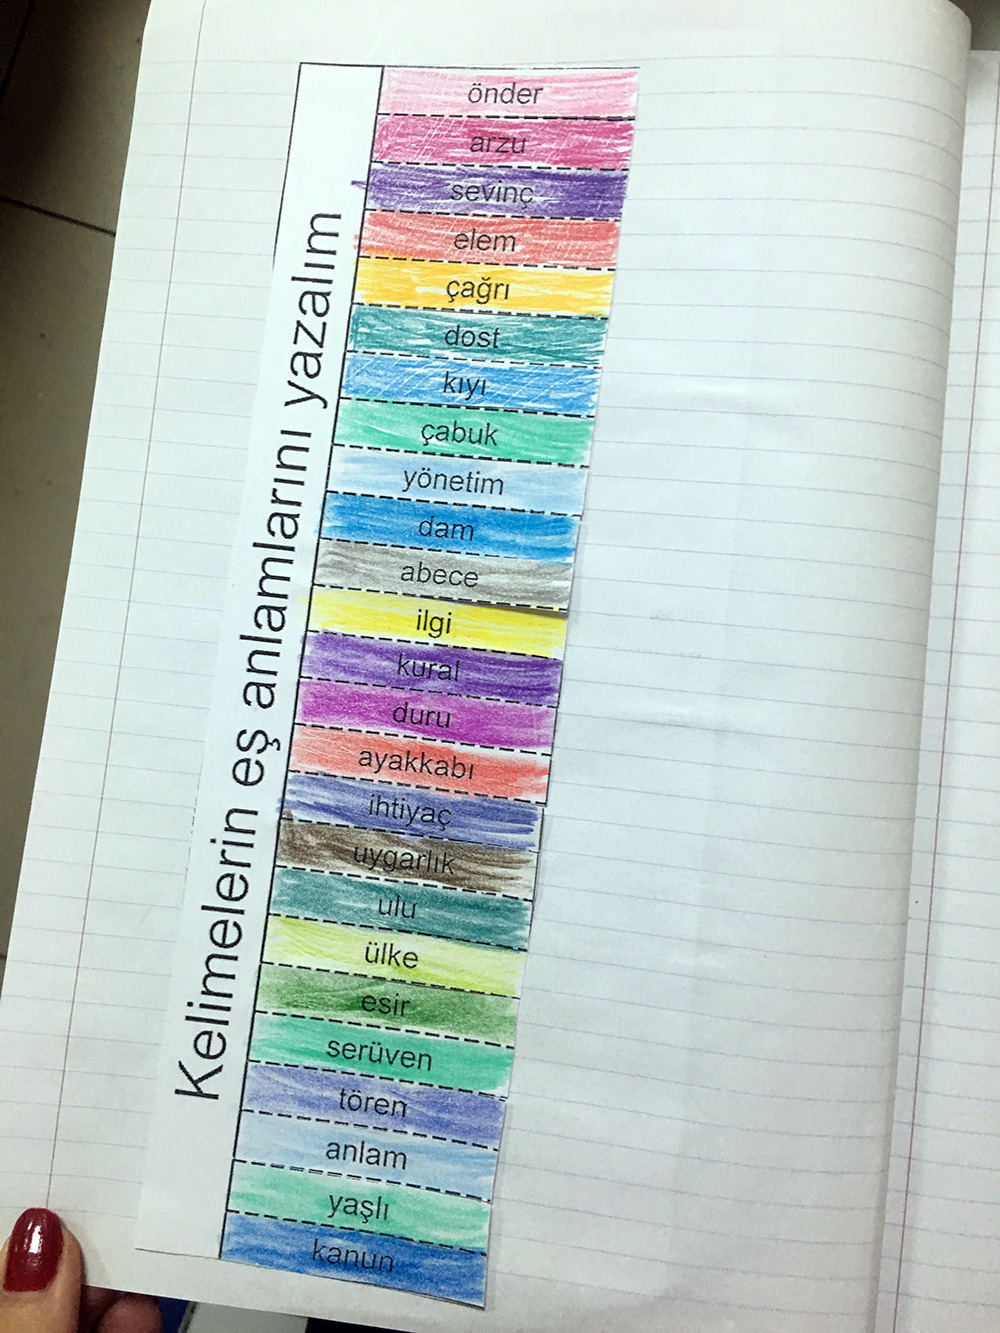 Kelimelerin eş anlamlarını yazalım
önder
arzu
sevinç
elem
çağrı
dost
kıyı
çabuk
yönetim
dam
abece
ilgi
kural
duru
ayakkabı
ihtiyaç
uygarlık
ulu
ülke
esir
serüven
tören
anlam
yaşlı
kanun